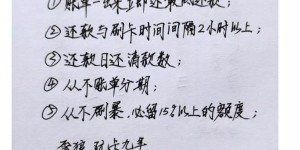 ①账单一出来立即还最低还款;
②还款与刷卡时间间隔2小时以上;
③还款日还清欠款;
④从不账单分期;
⑤从不刷暴,必留15%以上的额度;
玩卡九年